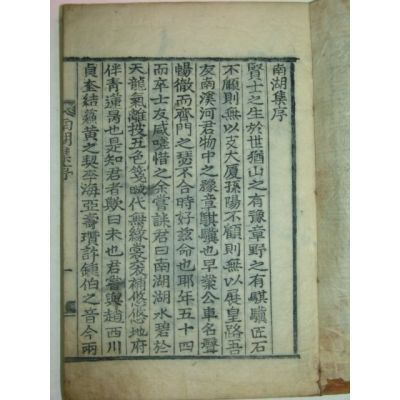 南湖集序
賢士之生於世猶山之有豫章野之有騏驥匠石
不顧則無以支大厦孫陽不顧則無以展皇路吾
友南溪河君物中之豫章騏驥也早業公車名聲
暢徹而齊門之瑟不合時好玆命也耶年五十四
而卒士友咸嗟惜之余嘗誄君曰南湖湖水碧於
天龍氣離披五色箋晩代無緣裳袞補悠悠地府
伴青蓮曷也是知君者歟曰未也君嘗與趙西川
貞奎結蘿黃之契李海亞壽瓚許鍾伯之音今兩
南湖集序
一